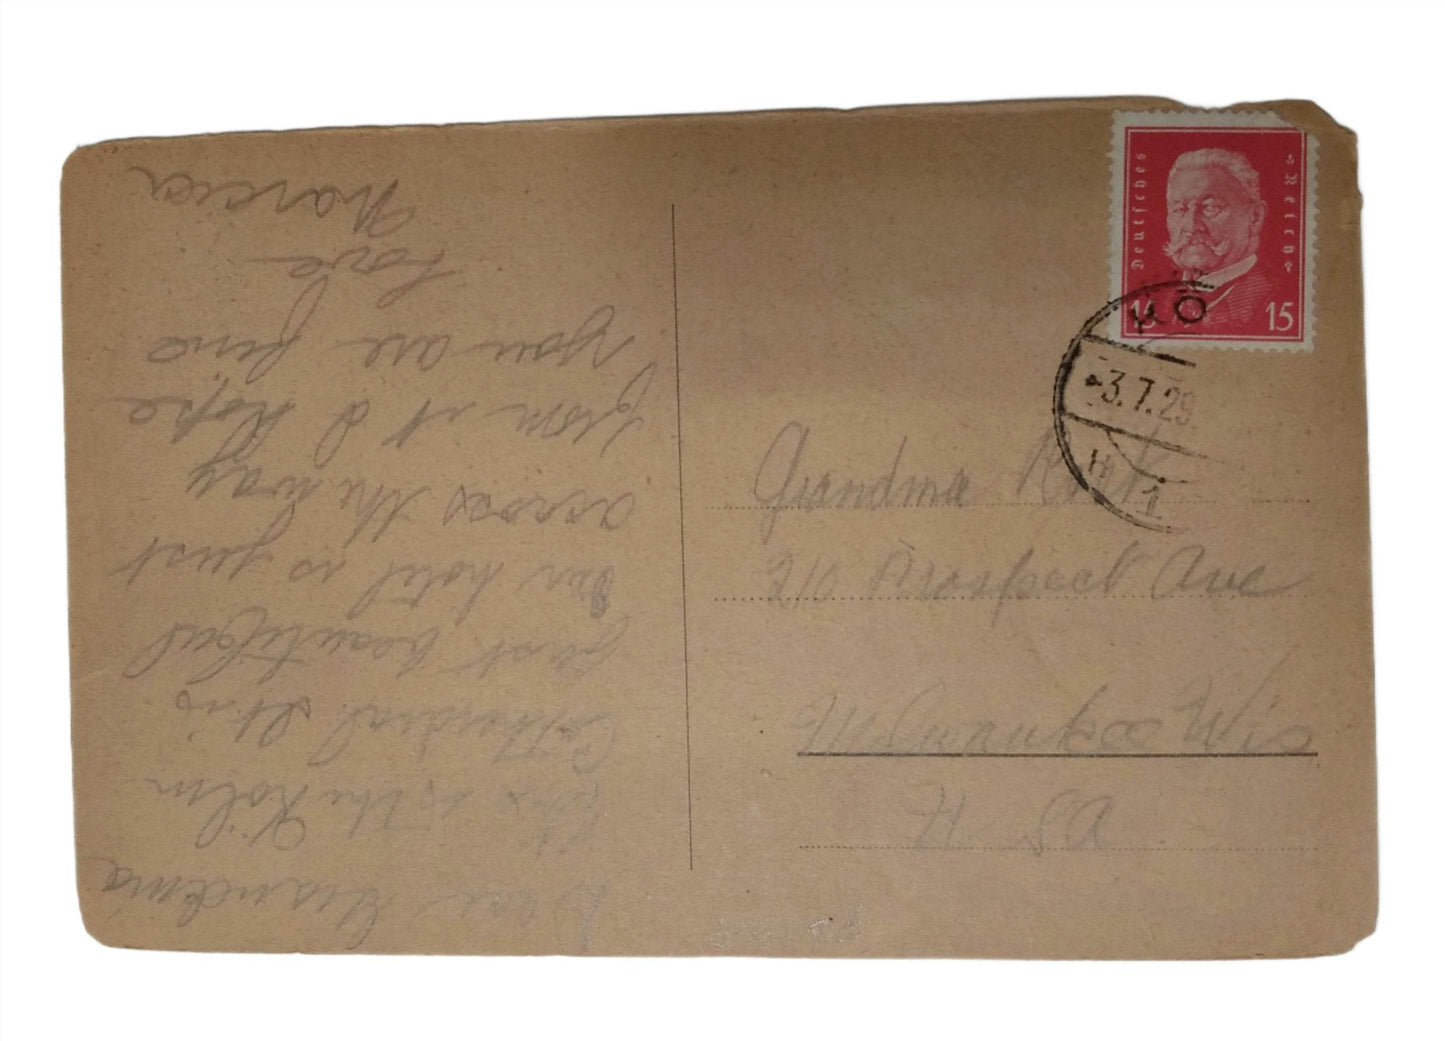 Dear Grandma
This is the Köln
Cathedral. It is
just beautiful
Our hotel is just
across the way
from it I hope
you are fine
Love
Marcia
Deutsches Reich
15 15
KÖ
3.7.29
1
Grandma
210 Prospect Ave
Milwaukee
Wis
USA